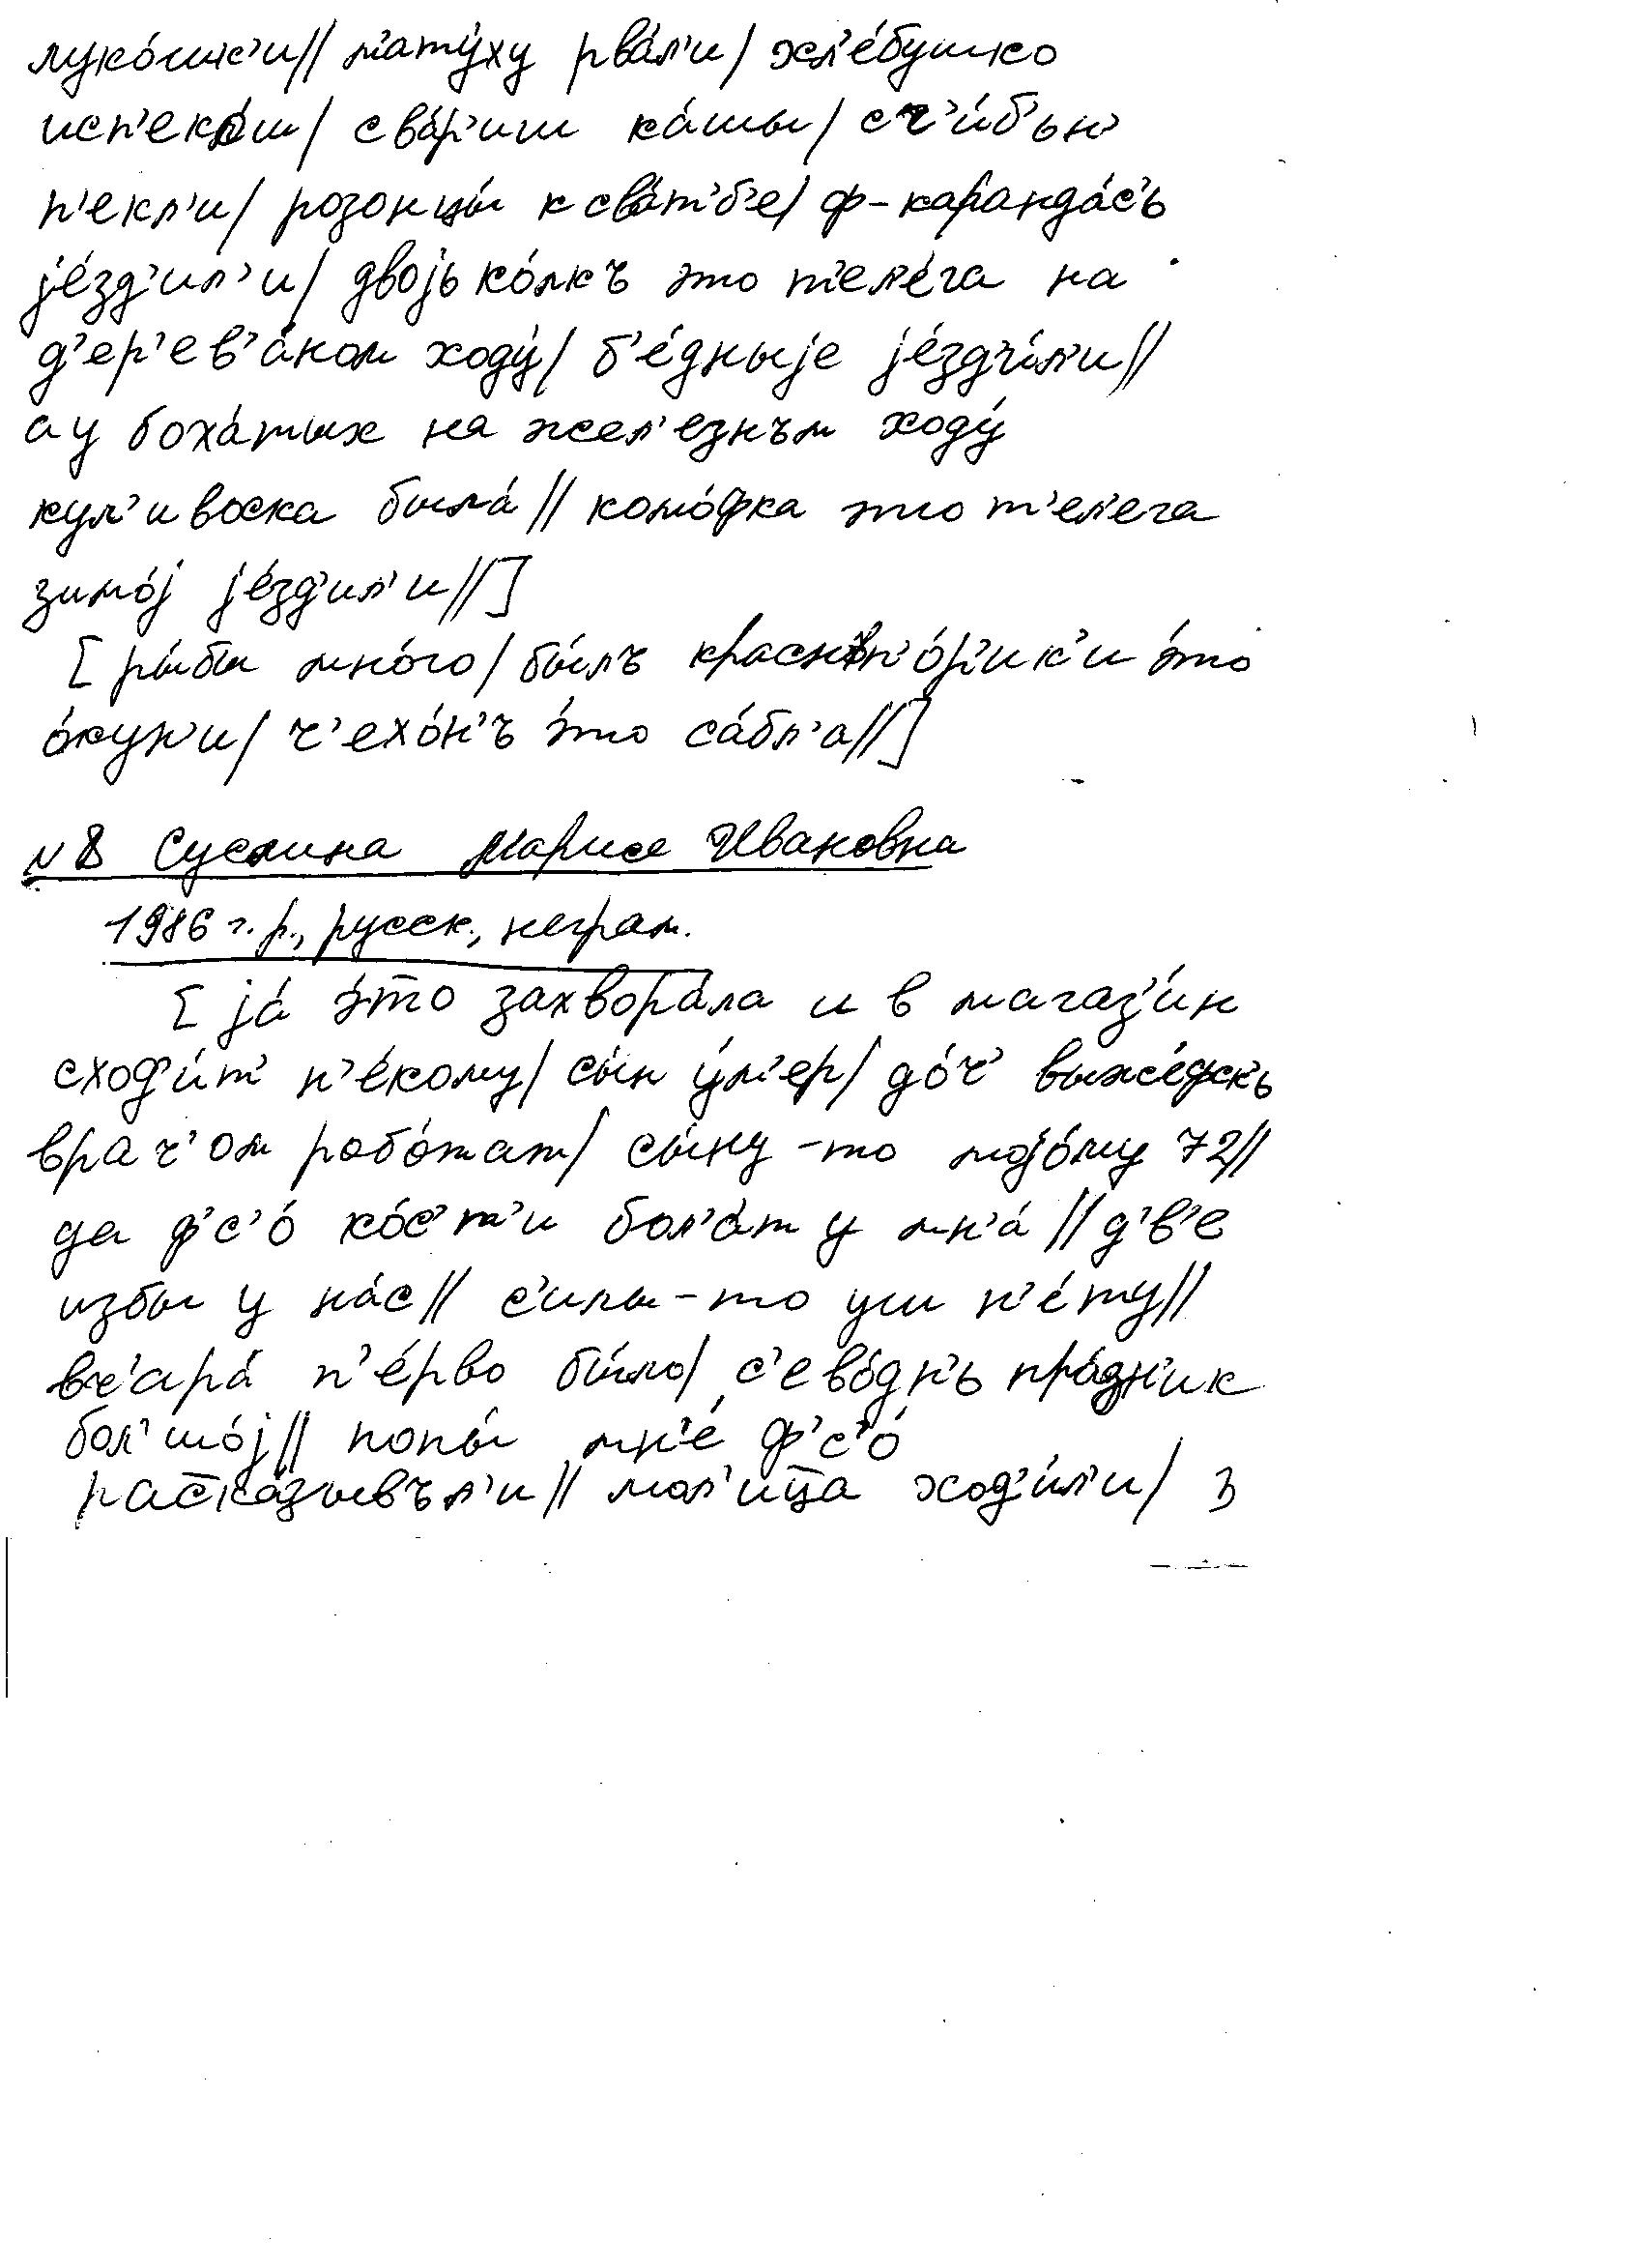 луко́шк'и// м'ату́ху рва́л'и/ хл'е́бушко
исп'еко́ш/ сва́р'иш ка́шы/ сч'и́б'ьн'
п'екл'и/ розонцы́ к сва́т'б'е/ ф-каранда́с'ь
jе́зд'ил'и/ двоjько́лкъ это т'ел'е́га на
д'ер'ев'а́ном ходу́/ б'е́дныjе jе́зд'и́л'и//
а у боха́тых на жел'езнъм ходу́
кул'и воска была́// кошо́фка это т'ел'ега
зимо́j jе́зд'ил'и//]
[ ры́бы мно́го/ бы́лъ краснъп'о́р'ик'и э́то
о́кун'и/ ч'ехо́н'ъ э́то са́бл'а//]
N 8 Суслина Мария Ивановна
1986 г. р., русск., неграм.
[ jа́ э́то захвора́ла и в магаз'и́н
сход'и́т' н'е́кому/ сы́н у́м'ер/ до́ч' выже́фскъ
врач'ом робо́тат/ сы́ну-то моjо́му 72//
да ф'с'о́ ко́с'т'и бол'а́т у мн'а́// д'в'е
избы у на́с// с'илы-то уш н'е́ту//
вч'ара́ п'е́рво бы́ло/ с'ево́дн'ь пра́зн'ик
бол'шо́j// попы́ мн'е́ ф'с'о́
раска́зывъл'и// мол'ица ход'и́л'и/ з